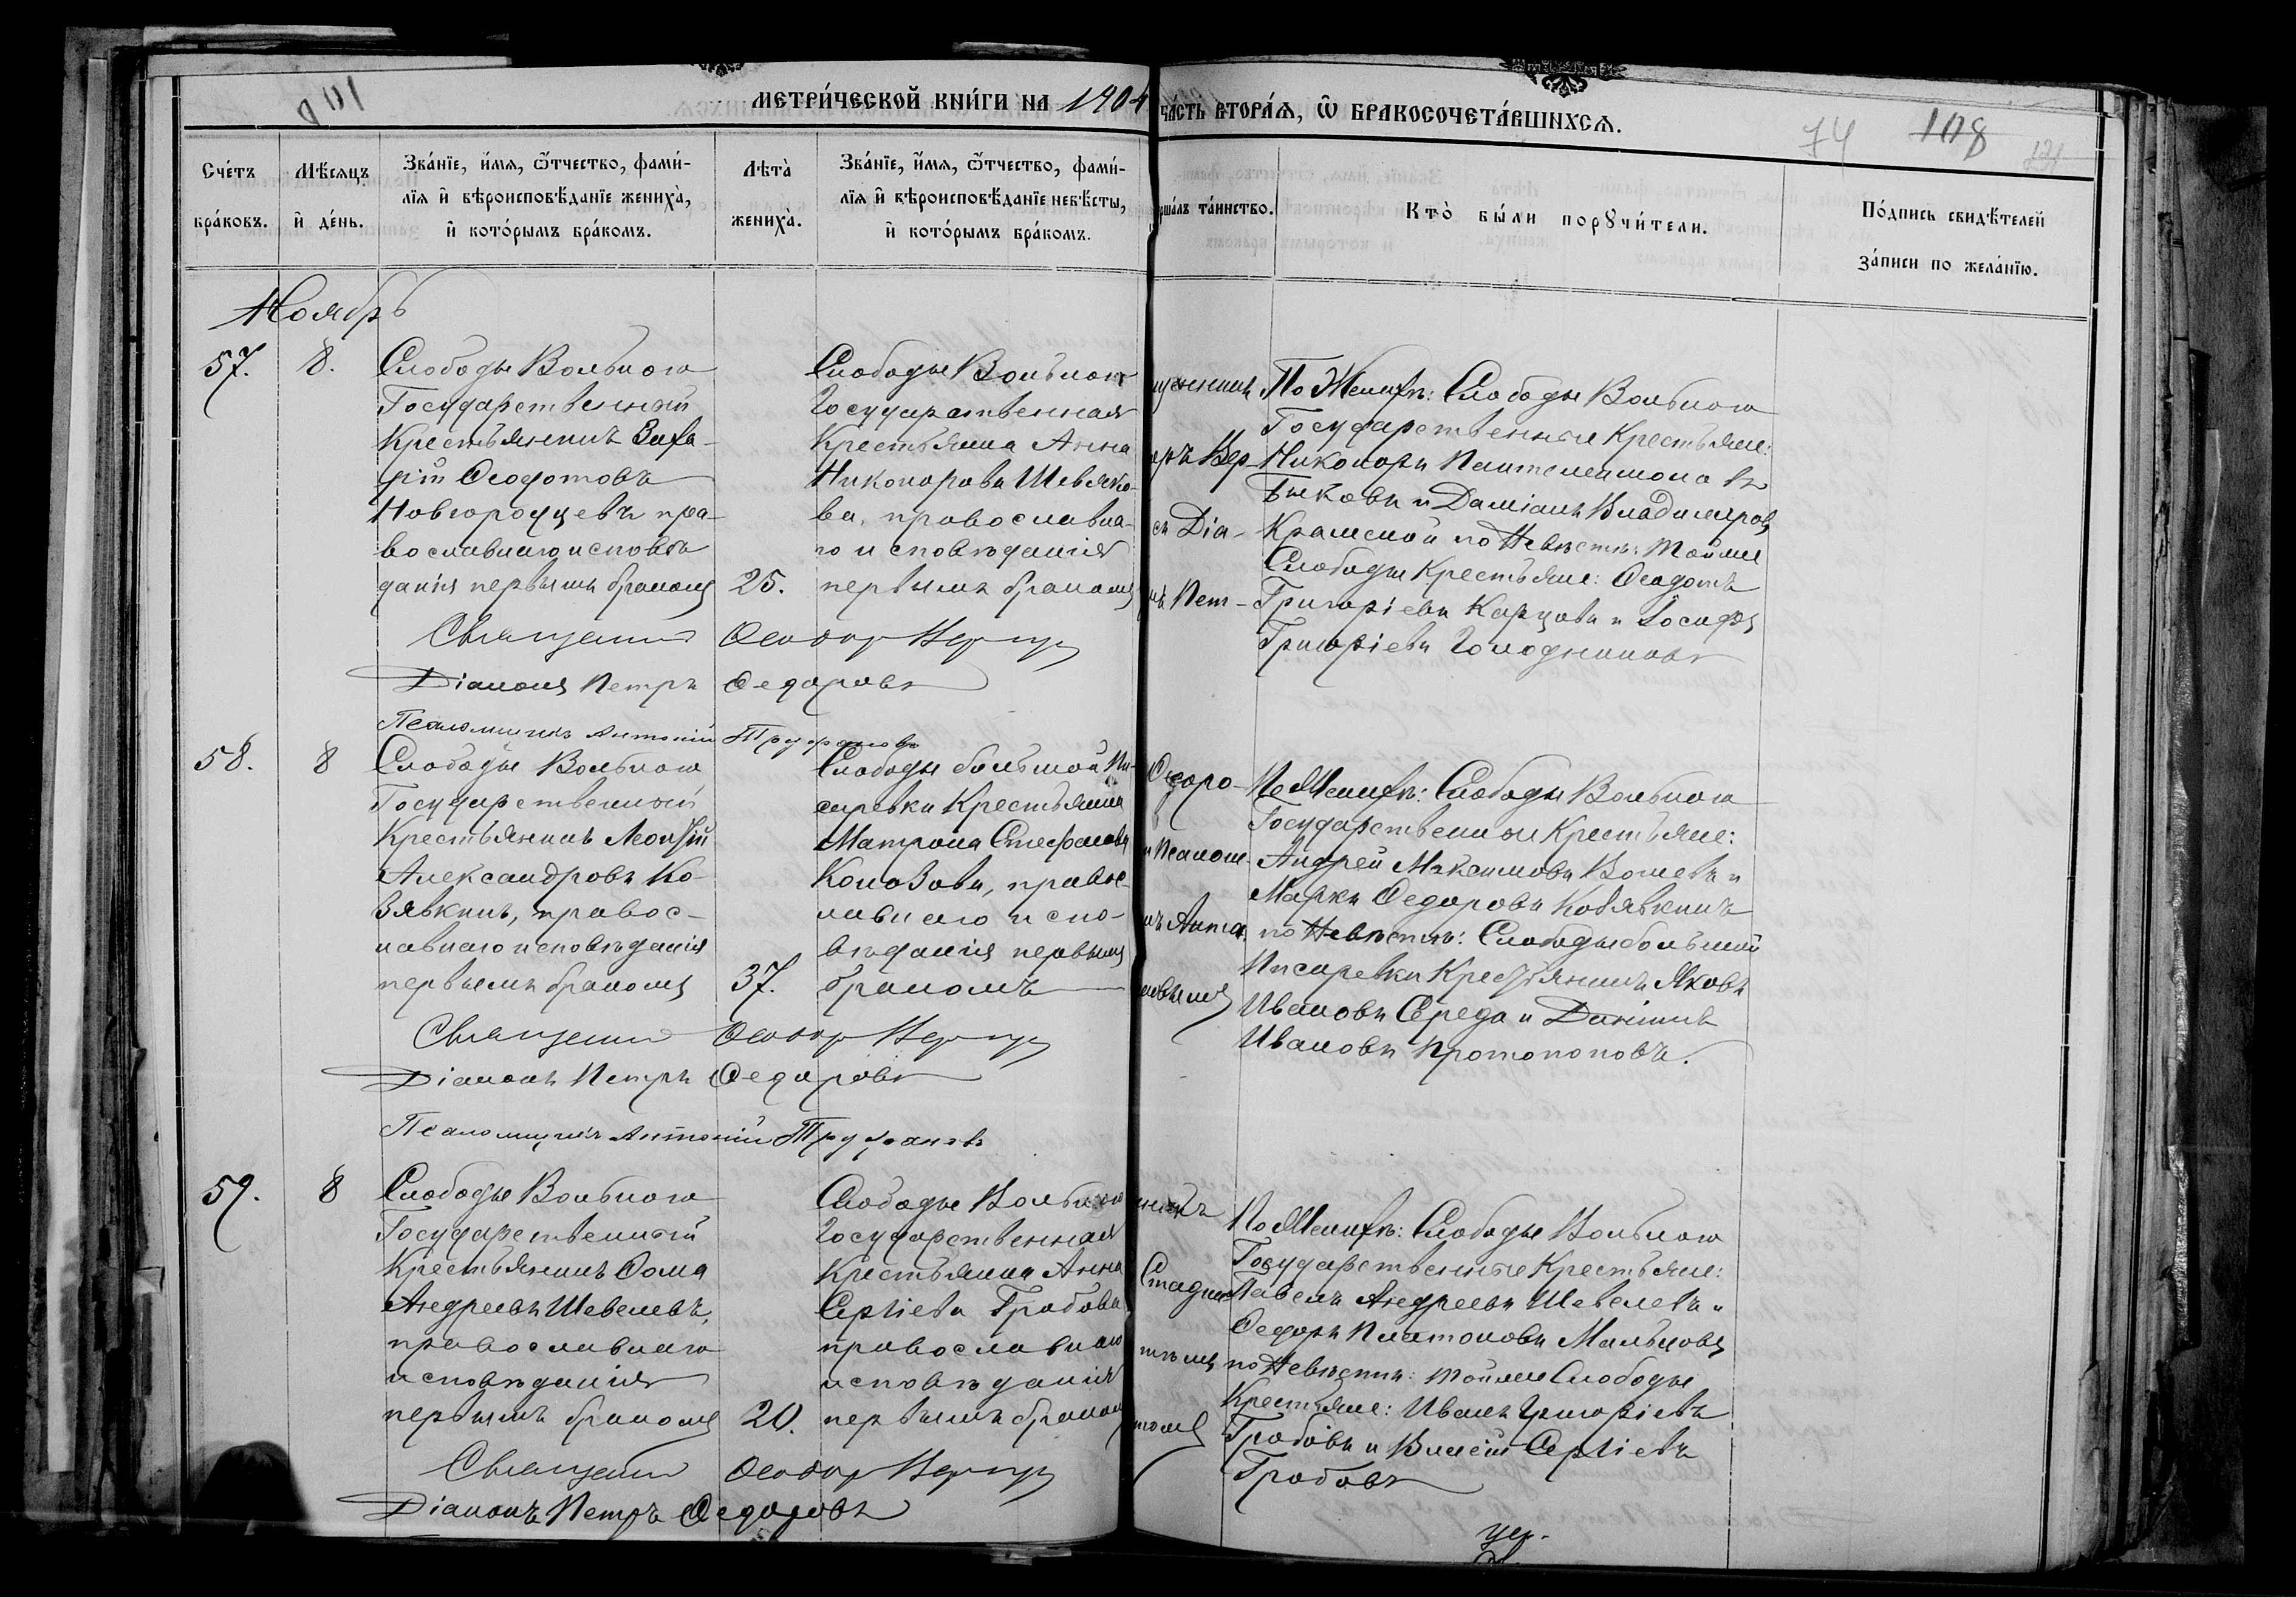 МЕТРИ́ЧЕСКОЙ КНИ́ГИ НА 1904
ЧА́СТЬ ВТОРА́Я, Ѿ БРАКОСОЧЕТА́ВШИХСЯ.
74 108
Сче́тъ бра́ковъ.
Мѣ́сяцъ и҆ де́нь.
Зва́нїе, и҆́мя, ѻ҆́тчество, фами́-
лїя и҆ вѣроисповѣ́данїе жениха̀,
и҆ кото́рымъ бра́комъ.
Лѣта̀ жениха̀.
Зва́нїе, и҆́мя, ѻ҆́тчество, фами́-
лїя и҆ вѣроисповѣ́данїе невѣ́сты,
и҆ кото́рымъ бра́комъ.
рша́лъ та́инство.
Кто̀ бы́ли порꙋчи́тели.
По́дпись свидѣ́телей
за́писи по жела́нїю.
Ноябрь
57.
8.
Слободы Вольнаго
Государственный
Крестьянинъ Заха-
рій Ѳеодотовъ
Новгородцевъ пра-
вославнаго исповѣ
данія первымъ бракомъ
25.
Слободы Вольнаго
Государственная
Крестьянка Анна
Никонорова Шевляко-
ва, православна-
го исповѣданія
первымъ бракомъ
оръ Вер-
съ Діа-
мъ Пет-
По Женихѣ: Слободы Вольнаго
Государственные Крестьяне:
Никоноръ Пантелеимоновъ
Быковъ и Даміанъ Владиміровъ
по Невѣстѣ: тойже
Слободы Крестьяне: Ѳеодотъ
Григоріевъ Карцовъ и Іосифъ
Григоріевъ
Священникъ Ѳеодоръ
Діаконъ Петръ Ѳедоровъ
Псаломщикъ Антоній Труфановъ
58.
8
Слободы Вольнаго
Государственный
Крестьянинъ Леонтій
Александровъ Ко-
зявкинъ, правос-
лавнаго исповѣданія
первымъ бракомъ
37.
Слободы большой Пи-
саревки Крестьянка
Матрона Стефанова
Коновова, правос-
лавнаго испо-
вѣданія первымъ
бракомъ
Ѳедоро-
и Псалом-
мъ Анто-
новымъ
По Женихѣ: Слободы Вольнаго
Государственные Крестьяне:
Андрей Максимовъ и
Маркъ Ѳедоровъ Козявкинъ
по Невѣстѣ: Слободы большой
Писаревки Крестьянинъ Яковъ
Ивановъ Середа и Даніилъ
Ивановъ Протопоповъ.
Священникъ Ѳеодоръ
Діаконъ Петръ Ѳедоровъ
Псаломщикъ Антоній Труфановъ
59.
8
Слободы Вольнаго
Государственный
Крестьянинъ Ѳома
Андреевъ Шевелевъ,
православнаго
исповѣданія
первымъ бракомъ
20.
Слободы Вольнаго
Государственная
Крестьянка Анна
Сергіева Гробова
православнаго
исповѣданія
первымъ бракомъ
По Женихѣ: Слободы Вольнаго
Государственные Крестьяне:
Павелъ Андреевъ Шевелевъ и
Ѳедоръ Платоновъ Мальцовъ
по Невѣстѣ: тойже Слободы
Крестьяне: Иванъ Григоріевъ
Гробовъ и Сергіевъ
Гробовъ
Священникъ Ѳеодоръ
Діаконъ Петръ Ѳедоровъ